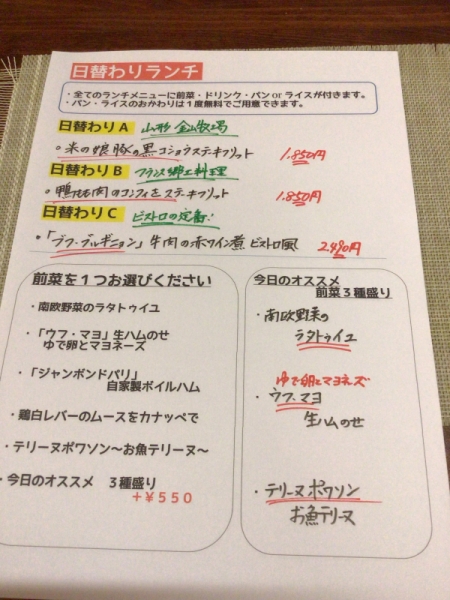 日替わりランチ
・全てのランチメニューに前菜・ドリンク・パン or ライスが付きます。
・パン・ライスのおかわりは１度無料でご用意できます。
日替わりA 山形 金山牧場
・米の娘豚の黒コショウステキフリット 1.850円
日替わりB フランス郷土料理
・鴨もも肉のコンフィをステキフリット 1.850円
日替わりC ビストロの定番!
・「ブフ・ブルギニョン」牛肉の赤ワイン煮 ビストロ風 2490円
前菜を１つお選びください
・南欧野菜のラタトゥイユ
・「ウフ・マヨ」生ハムのせ
ゆで卵とマヨネーズ
・「ジャンボンドパリ」
自家製ボイルハム
・鶏白レバーのムースをカナッペで
・テリーヌポワソン～お魚テリーヌ～
・今日のオススメ ３種盛り
＋￥５５０
今日のオススメ
前菜３種盛り
・南欧野菜の
ラタトゥイユ
ゆで卵とマヨネズ
・ウフ・マヨ
生ハムのせ
・テリーヌ ポワソン
お魚テリーヌ